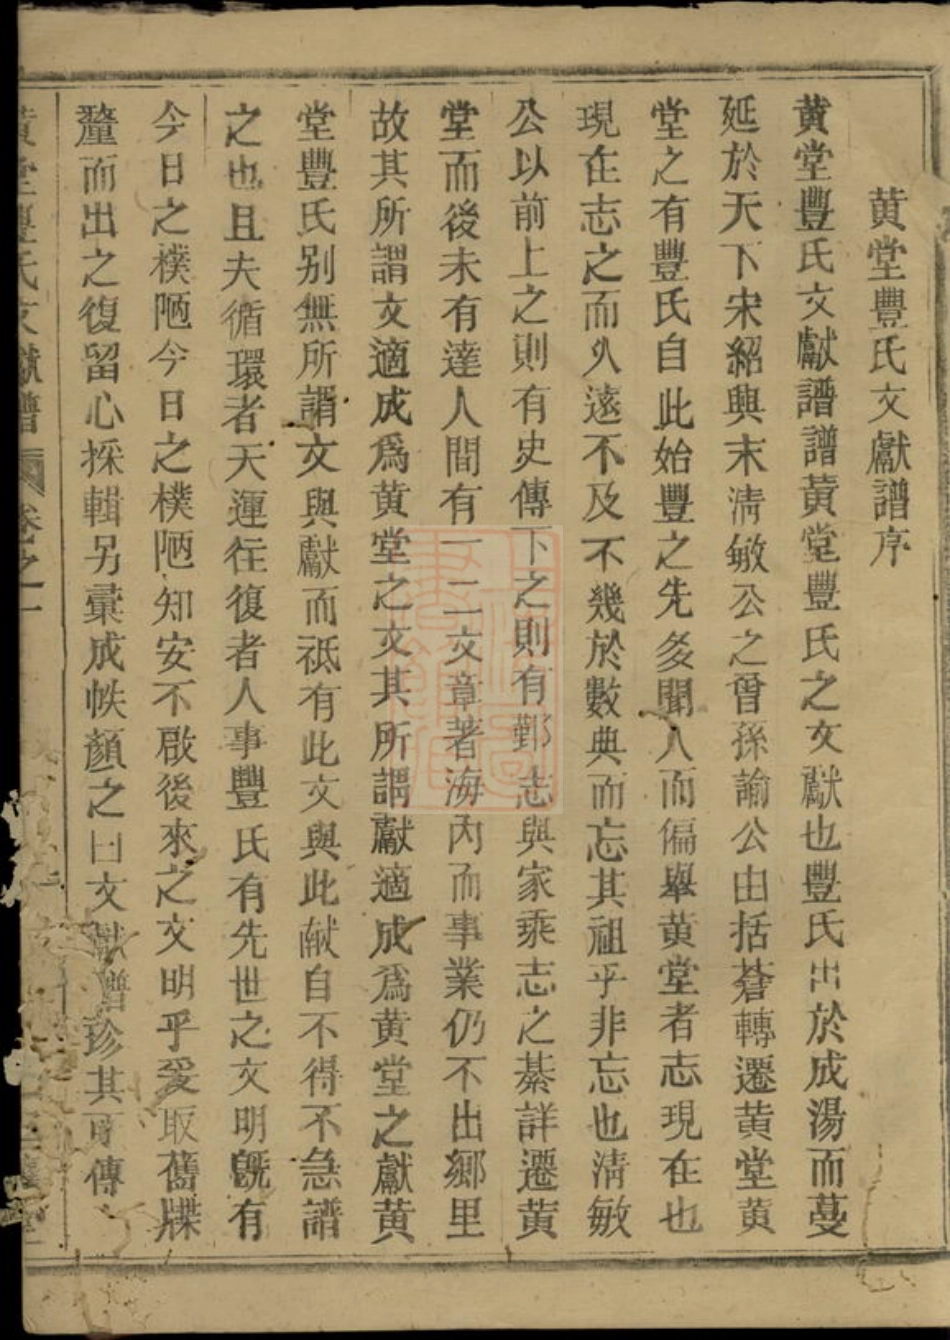 黄堂豐氏文獻譜序
黄堂豐氏文獻譜譜黄堂豐氏之文獻也豐氏出於成湯而蔓
延於天下宋紹興末清敏公之曾孫諭公由括蒼轉遷黄堂黄
堂之有豐氏自此始豐之先多聞人而偏舉黄堂者志現在也
現在志之而久遠不及不幾於數典而忘其祖乎非忘也清敏
公以前上之則有史傳下之則有鄞志與家乘志之綦詳遷黄
堂而後未有達人間有一二文章著海内而事業仍不出鄉里
故其所謂文適成爲黄堂之文其所謂獻適成爲黄堂之獻黄
堂豐氏别無所謂文與獻而祗有此文與此献自不得不急譜
之也且夫循環者天運往復者人事豐氏有先世之文明旣有
今日之樸陋今日之樸陋知安不啟後來之文明乎爰取舊牒
釐而出之復留心採輯另彚成帙顏之曰文献譜珍其可傳
黄堂豐氏文獻譜 卷之一